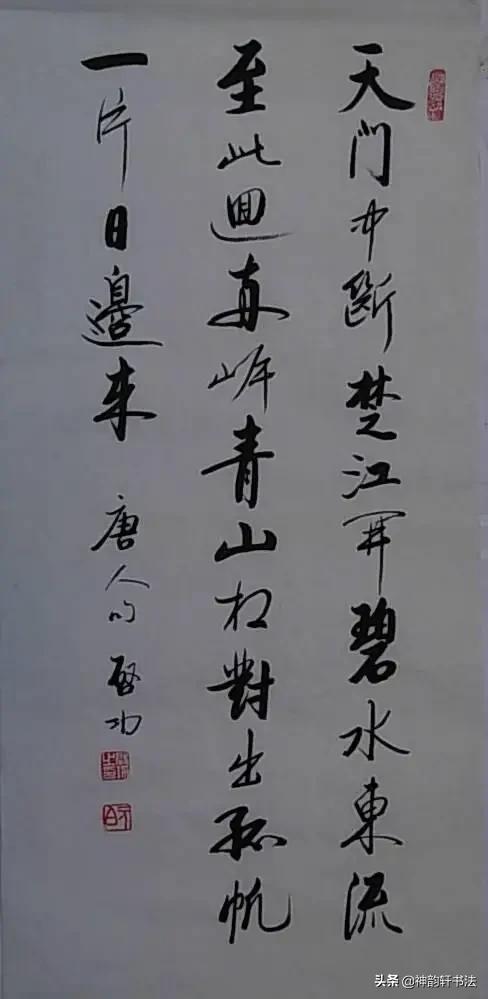 天門中斷楚江開碧水東流
至此迴兩岸青山相對出孤帆
一片日邊來 唐人句 啓功
头条 @神韵轩书法